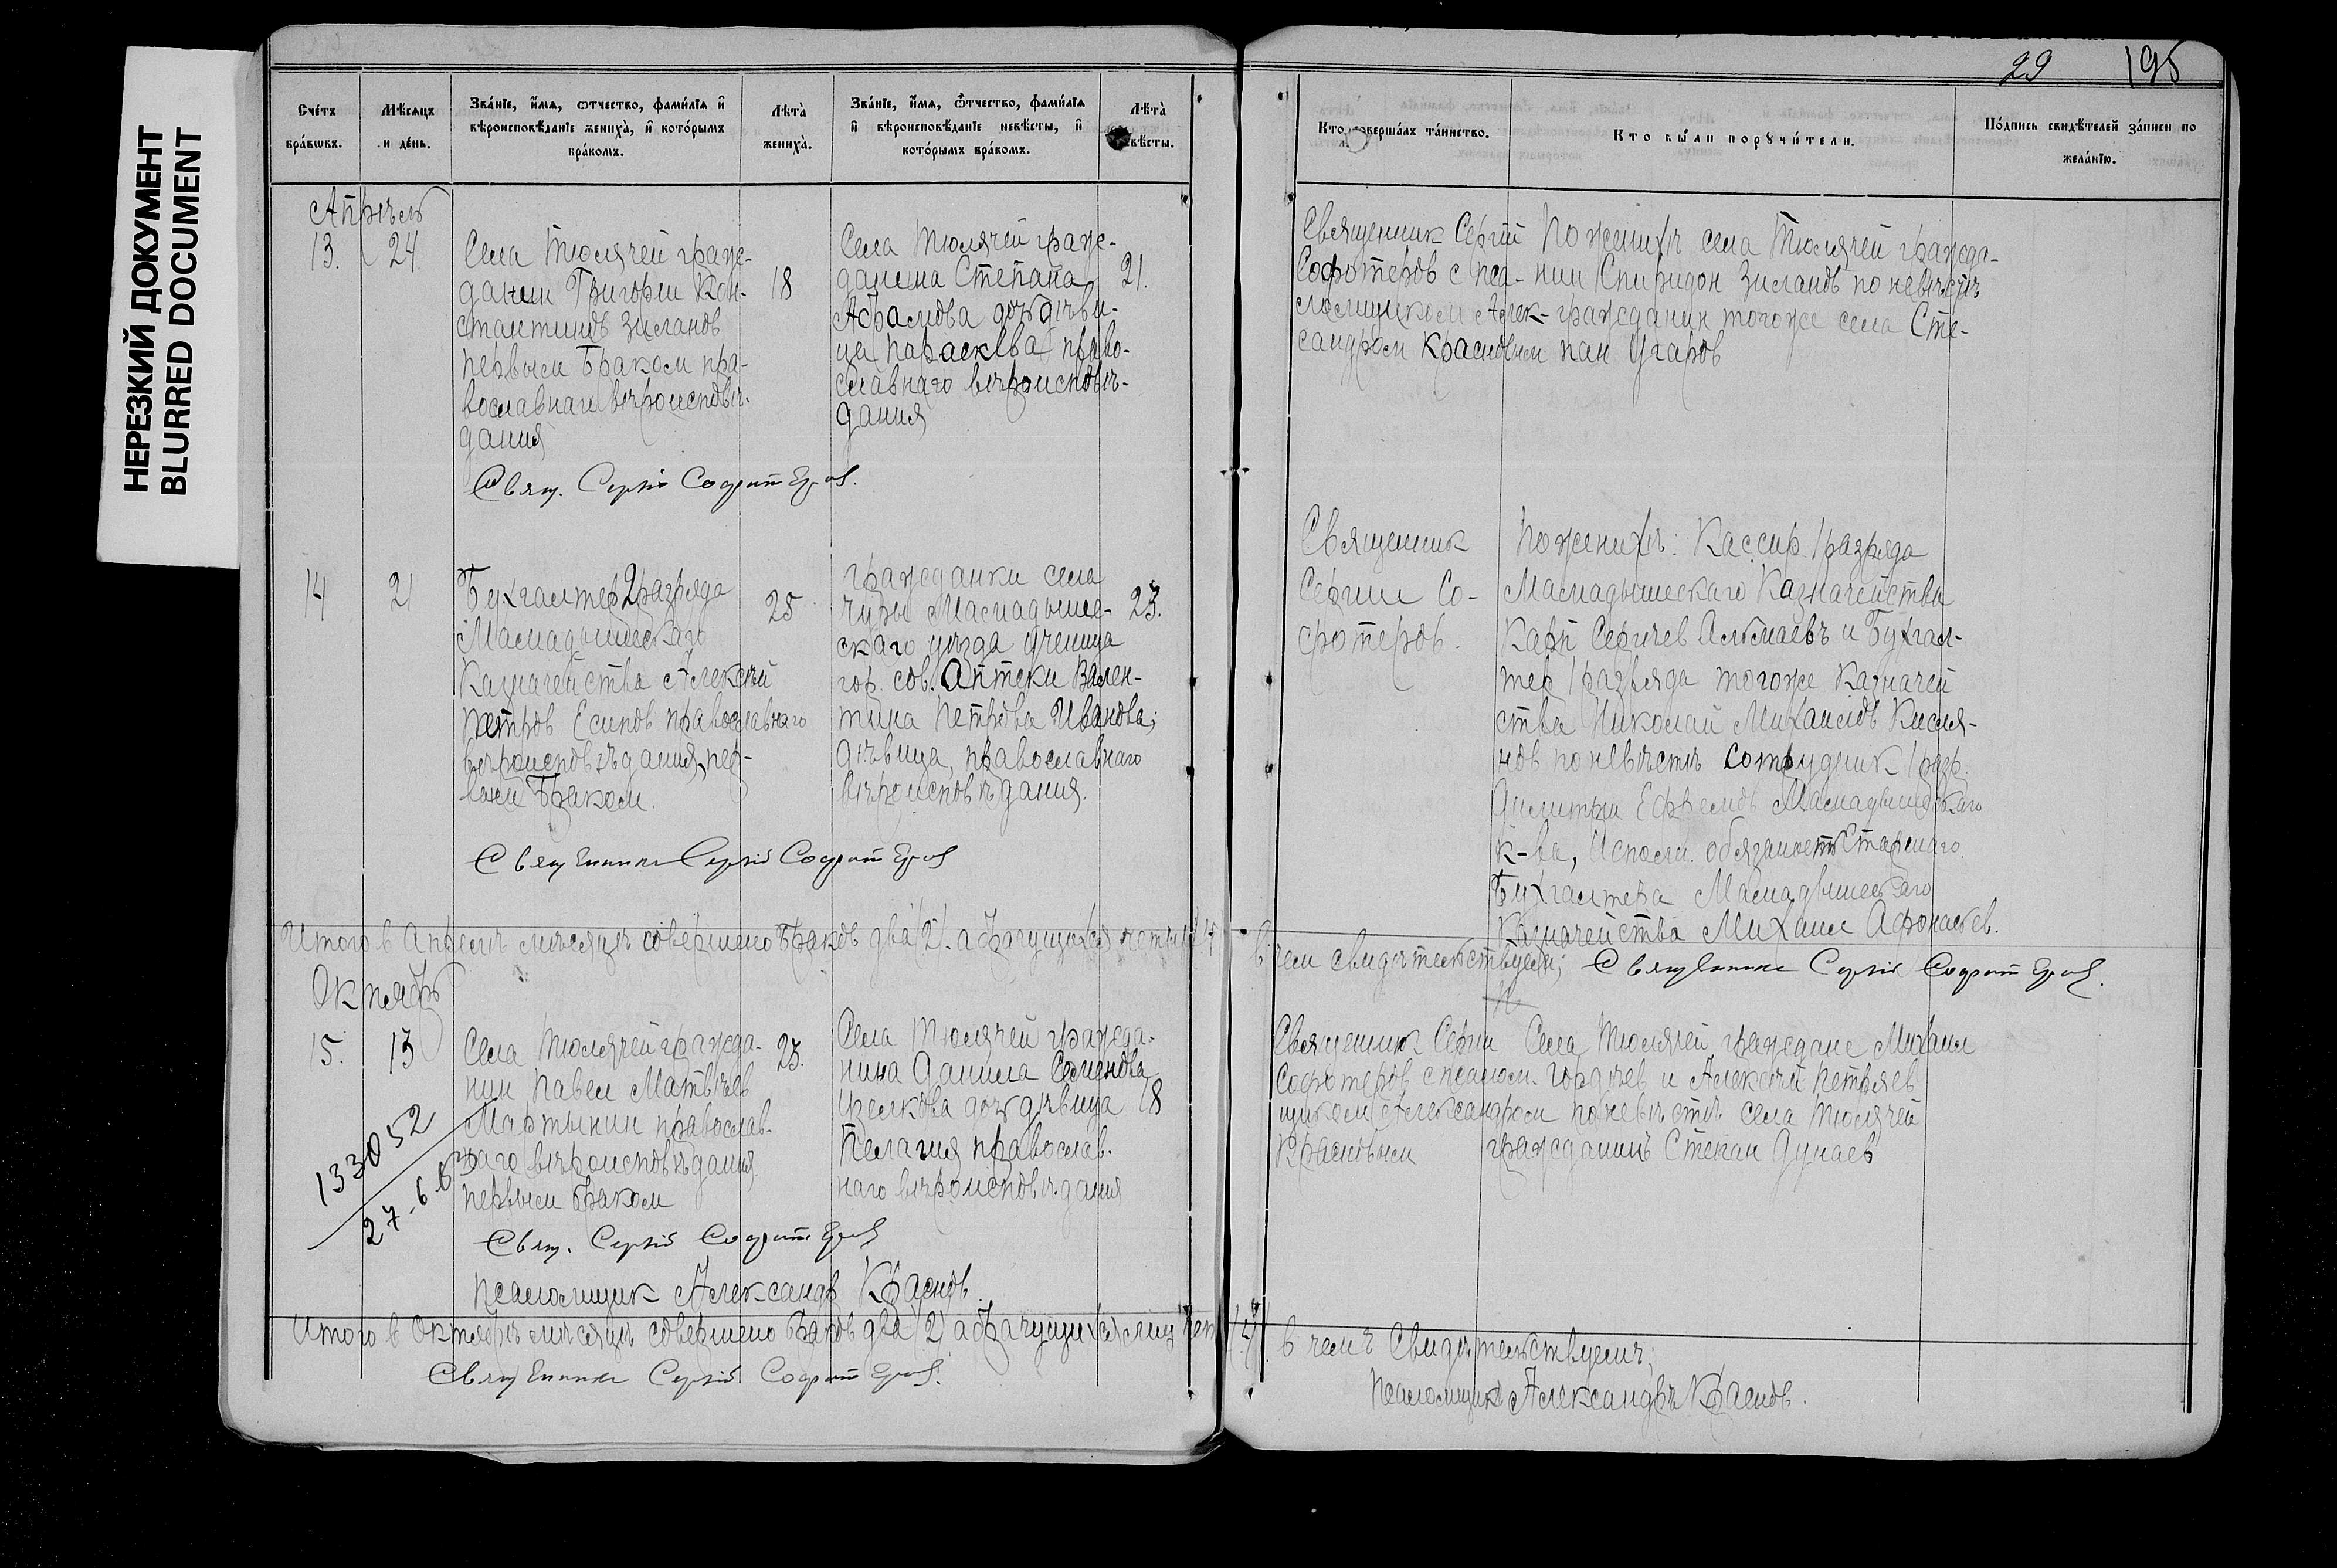 НЕРЕЗКИЙ ДОКУМЕНТ
BLURRED DOCUMENT
29 195
Счéтъ бра́кѡвъ.
Мѣ́сяцъ и де́нь.
Зва́нїе, и́мя, ѻ҆́тчество, фами́лїя и҆ вѣроисповѣ́данїе жениха̀, и҆ кото́рымъ бра́комъ.
Лѣта̀ жениха̀.
Зва́нїе, и́мя, ѻ҆́тчество, фами́лїя и҆ вѣроисповѣ́данїе невѣ́сты, и҆ кото́рымъ бра́комъ.
Лѣта̀ невѣ́сты.
Кто̀ соверша́лъ та́инство.
Кто̀ бы́ли порꙋчи́тели.
По́дпись свидѣ́телей за́писи по жела́нїю.
Апрѣль
13. 24
Села Тюлячей граж-
данин Григории Кон-
стантинов Зиланов
первым браком пра-
вославнаго вѣроисповѣ-
дания
18
Села Тюлячей граж-
данина Степана
Абрамова дочь дѣви-
ца Параскева право-
славнаго вѣроисповѣ-
дания
21.
Священник Сергий
Софотеров с пса-
ломщиком Алек-
сандром Красновым
По женихѣ села Тюлячей гражда-
нин Спиридон Зиланов по невѣстѣ
гражданин тогоже села Сте-
пан Угаров
Свящ. Сергій Софотеров.
14 21
Бухгалтер 2 разряда
Мамадышскаго
Казначейства Алексѣй
Петров Есипов православнаго
вѣроисповѣдания, пер-
вым браком.
25
гражданки села
Чуры Мамадыш-
скаго уѣзда ученица
гор. сов. Аптеки Вален-
тина Петрова Иванова;
дѣвица, православнаго
вѣроисповѣдания.
23.
Священник
Сергии Со-
фотеров.
По женихѣ: Кассир 1 разряда
Мамадышскаго Казначейства
Карп Сергиев Алкмаевъ и Бухгал-
тер 1 разряда тогоже Казначей
ства Николай Михаилов Кисля-
нов по невѣстѣ сотрудник 1 разр.
Димитрии Ефремов Мамадышскаго
К-ва, Исполн. обязаность Старшаго
Бухгалтера Мамадышскаго
Казначейства Михаил Афонасьев.
Священник Сергій Софотеров
Итого в Апрелѣ мѣсяцѣ совершено браков два (2). а брачущихся четыре 4
в чем свидѣтельствуем; Священник Сергій Софотеров.
Октябрь
15. 13
Села Тюлячей гражда-
нин Павел Матвѣев
Мартынин православ-
наго вѣроисповѣдания
первым браком
23.
Села Тюлячей гражда-
нина Данила Семенова
дочь дѣвица
Пелагия православ-
наго вѣроисповѣдания
18
Священник Сергии
Софотеров с псалом-
щиком Александром
Красновым
Села Тюлячей граждане Михаил
Гордѣев и Алексѣй Петряев
по невѣстѣ села Тюлячей
гражданинъ Степан Дунаев
133052
27-6-6
Свящ. Сергій Софотеров
Псаломщик Александр Краснов.
Итого в Октябрѣ мѣсяцѣ совершено браков два (2) а брачущихся лиц чет (4). в чемъ Свидѣтельствуемъ;
Священник Сергій Софотеров.
Псаломщикъ Александръ Краснов.